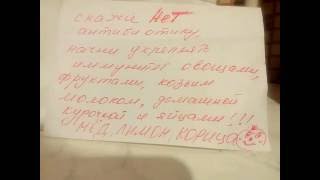 скажи НЕТ
антибиотику,
начни укреплять
иммунитет овощами,
фруктами, козьим
молоком, домашней
курочкой и яйцами!!!
МЁД, ЛИМОН, КОРИЦА